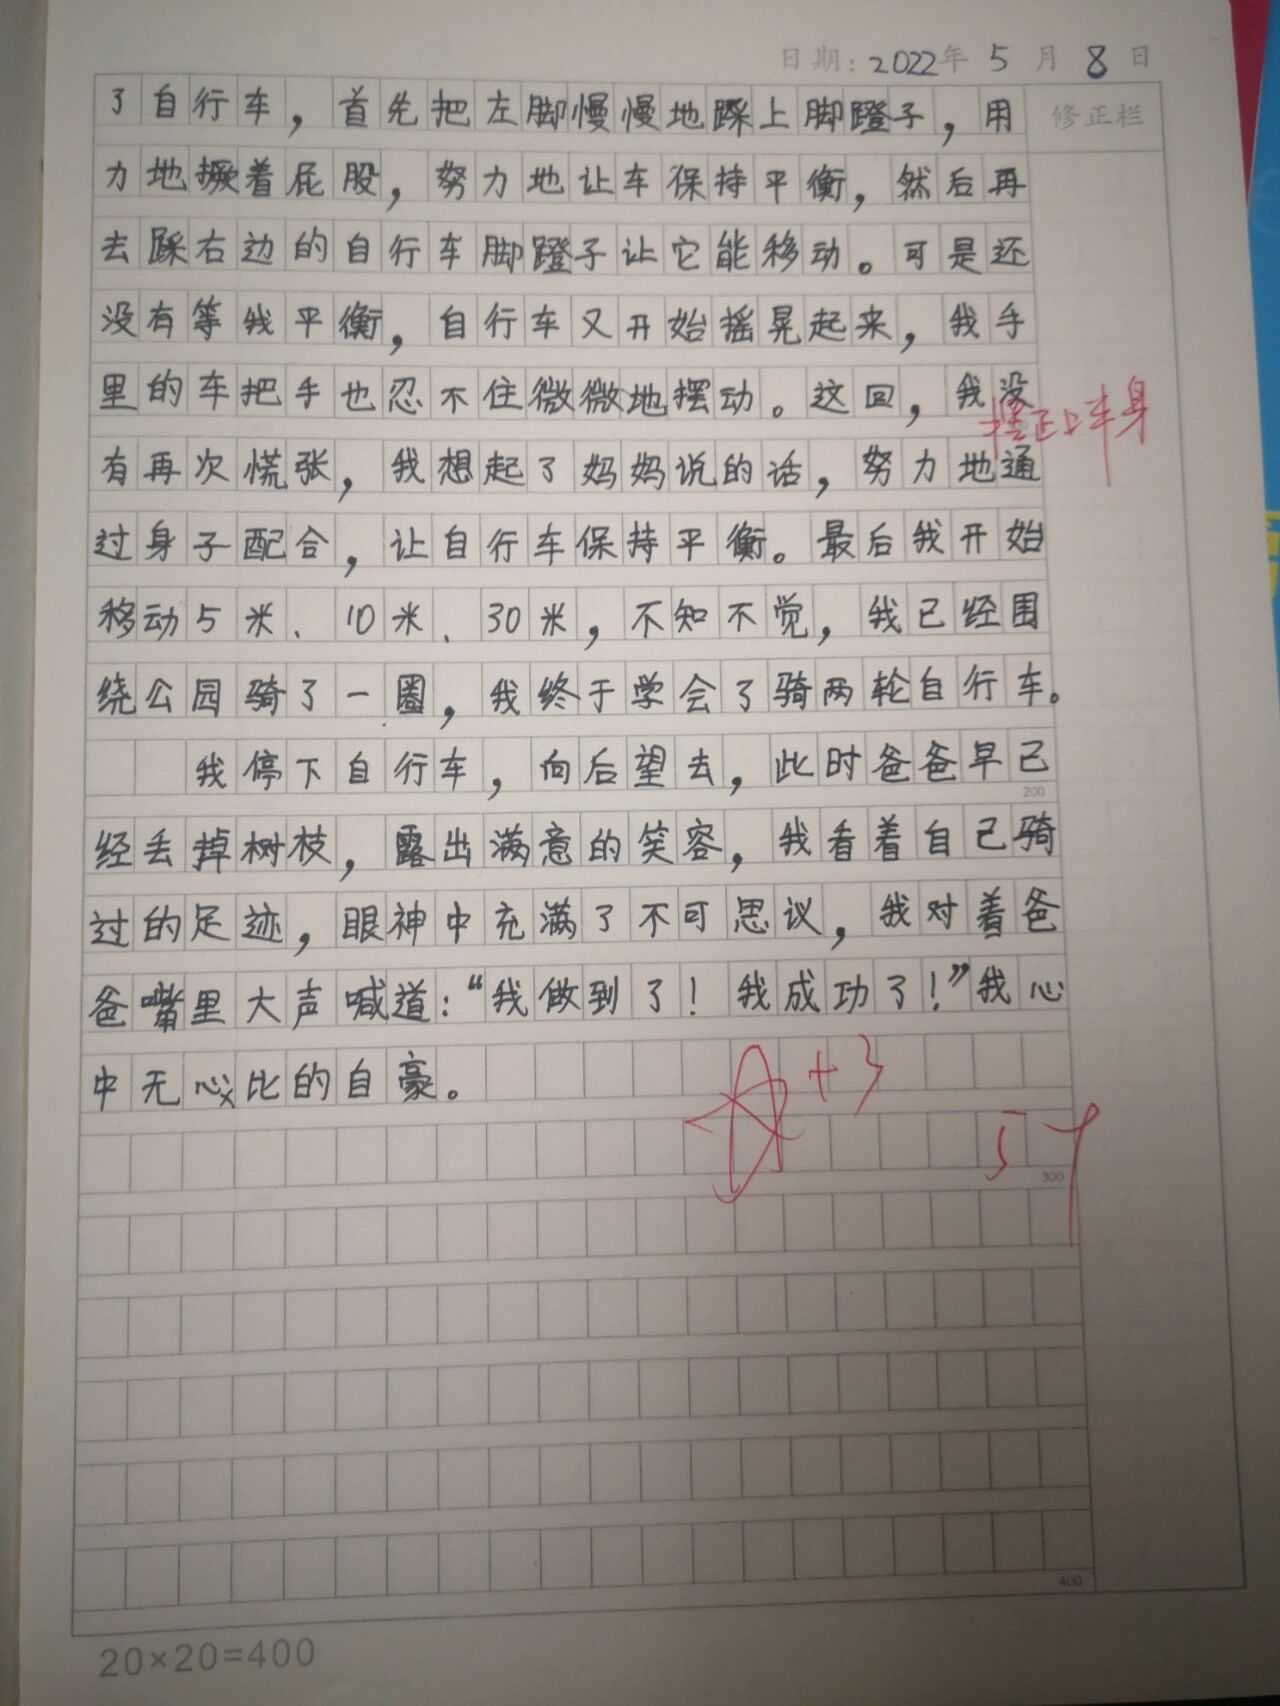 日期:2022年5月8日
修正栏
了自行车,首先把左脚慢慢地踩上脚蹬子,用
力地撅着屁股,努力地让车保持平衡,然后再
去踩右边的自行车脚蹬子让它能移动。可是还
没有等我平衡,自行车又开始摇晃起来,我手
里的车把手也忍不住微微地摆动。这回,我没
摆正上半身
有再次慌张,我想起了妈妈说的话,努力地通
过身子配合,让自行车保持平衡。最后我开始
移动5米、10米、30米,不知不觉,我已经围
绕公园骑了一圈,我终于学会了骑两轮自行车。
我停下自行车,向后望去,此时爸爸早已
200
经丢掉树枝,露出满意的笑容,我看着自己骑
过的足迹,眼神中充满了不可思议,我对着爸
爸嘴里大声喊道:“我做到了!我成功了!”我心
中无比的自豪。
+3
300
400
20×20=400